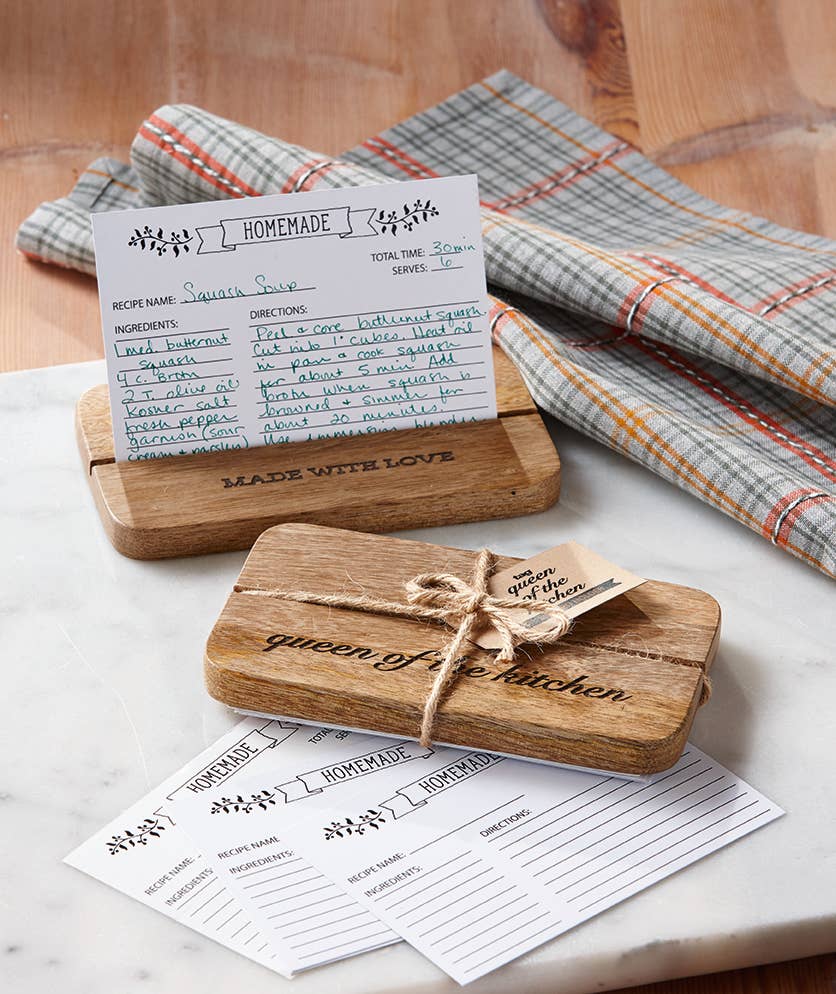 HOMEMADE
TOTAL TIME: 30 min
SERVES: 6
RECIPE NAME: Squash Soup
INGREDIENTS:
1 med. butternut
squash
4 c. Broth
2 T. olive oil
Kosher salt
fresh pepper
garnish (sour
cream + parsley
DIRECTIONS:
Peel & core butternut squash.
Cut into 1" cubes. Heat oil
in pan & cook squash
for about 5 min. Add
broth when squash is
browned & simmer for
about 20 minutes.
Use immersion blender
MADE WITH LOVE
tag
queen of the
kitchen
queen of the kitchen
HOMEMADE
TOTAL
RECIPE NAME
INGREDIENTS:
HOMEMADE
RECIPE NAME
INGREDIENTS:
HOMEMADE
RECIPE NAME:
INGREDIENTS:
DIRECTIONS: